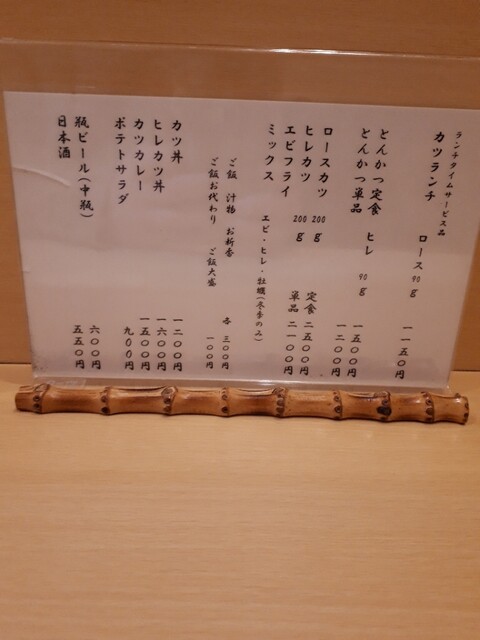 ランチタイムサービス品
カツランチ ロース90g 一一五〇円
とんかつ定食 ヒレ 90g 一五〇〇円
とんかつ単品 一二〇〇円
ロースカツ 200g
ヒレカツ 200g 定食 二五〇〇円
エビフライ 単品 二一〇〇円
ミックス エビ・ヒレ・牡蠣(冬季のみ)
ご飯 汁物 お新香 各 三〇〇円
ご飯お代わり ご飯大盛 一〇〇円
カツ丼 一二〇〇円
ヒレカツ丼 一六〇〇円
カツカレー 一五〇〇円
ポテトサラダ 九〇〇円
瓶ビール(中瓶) 六〇〇円
日本酒 五五〇円